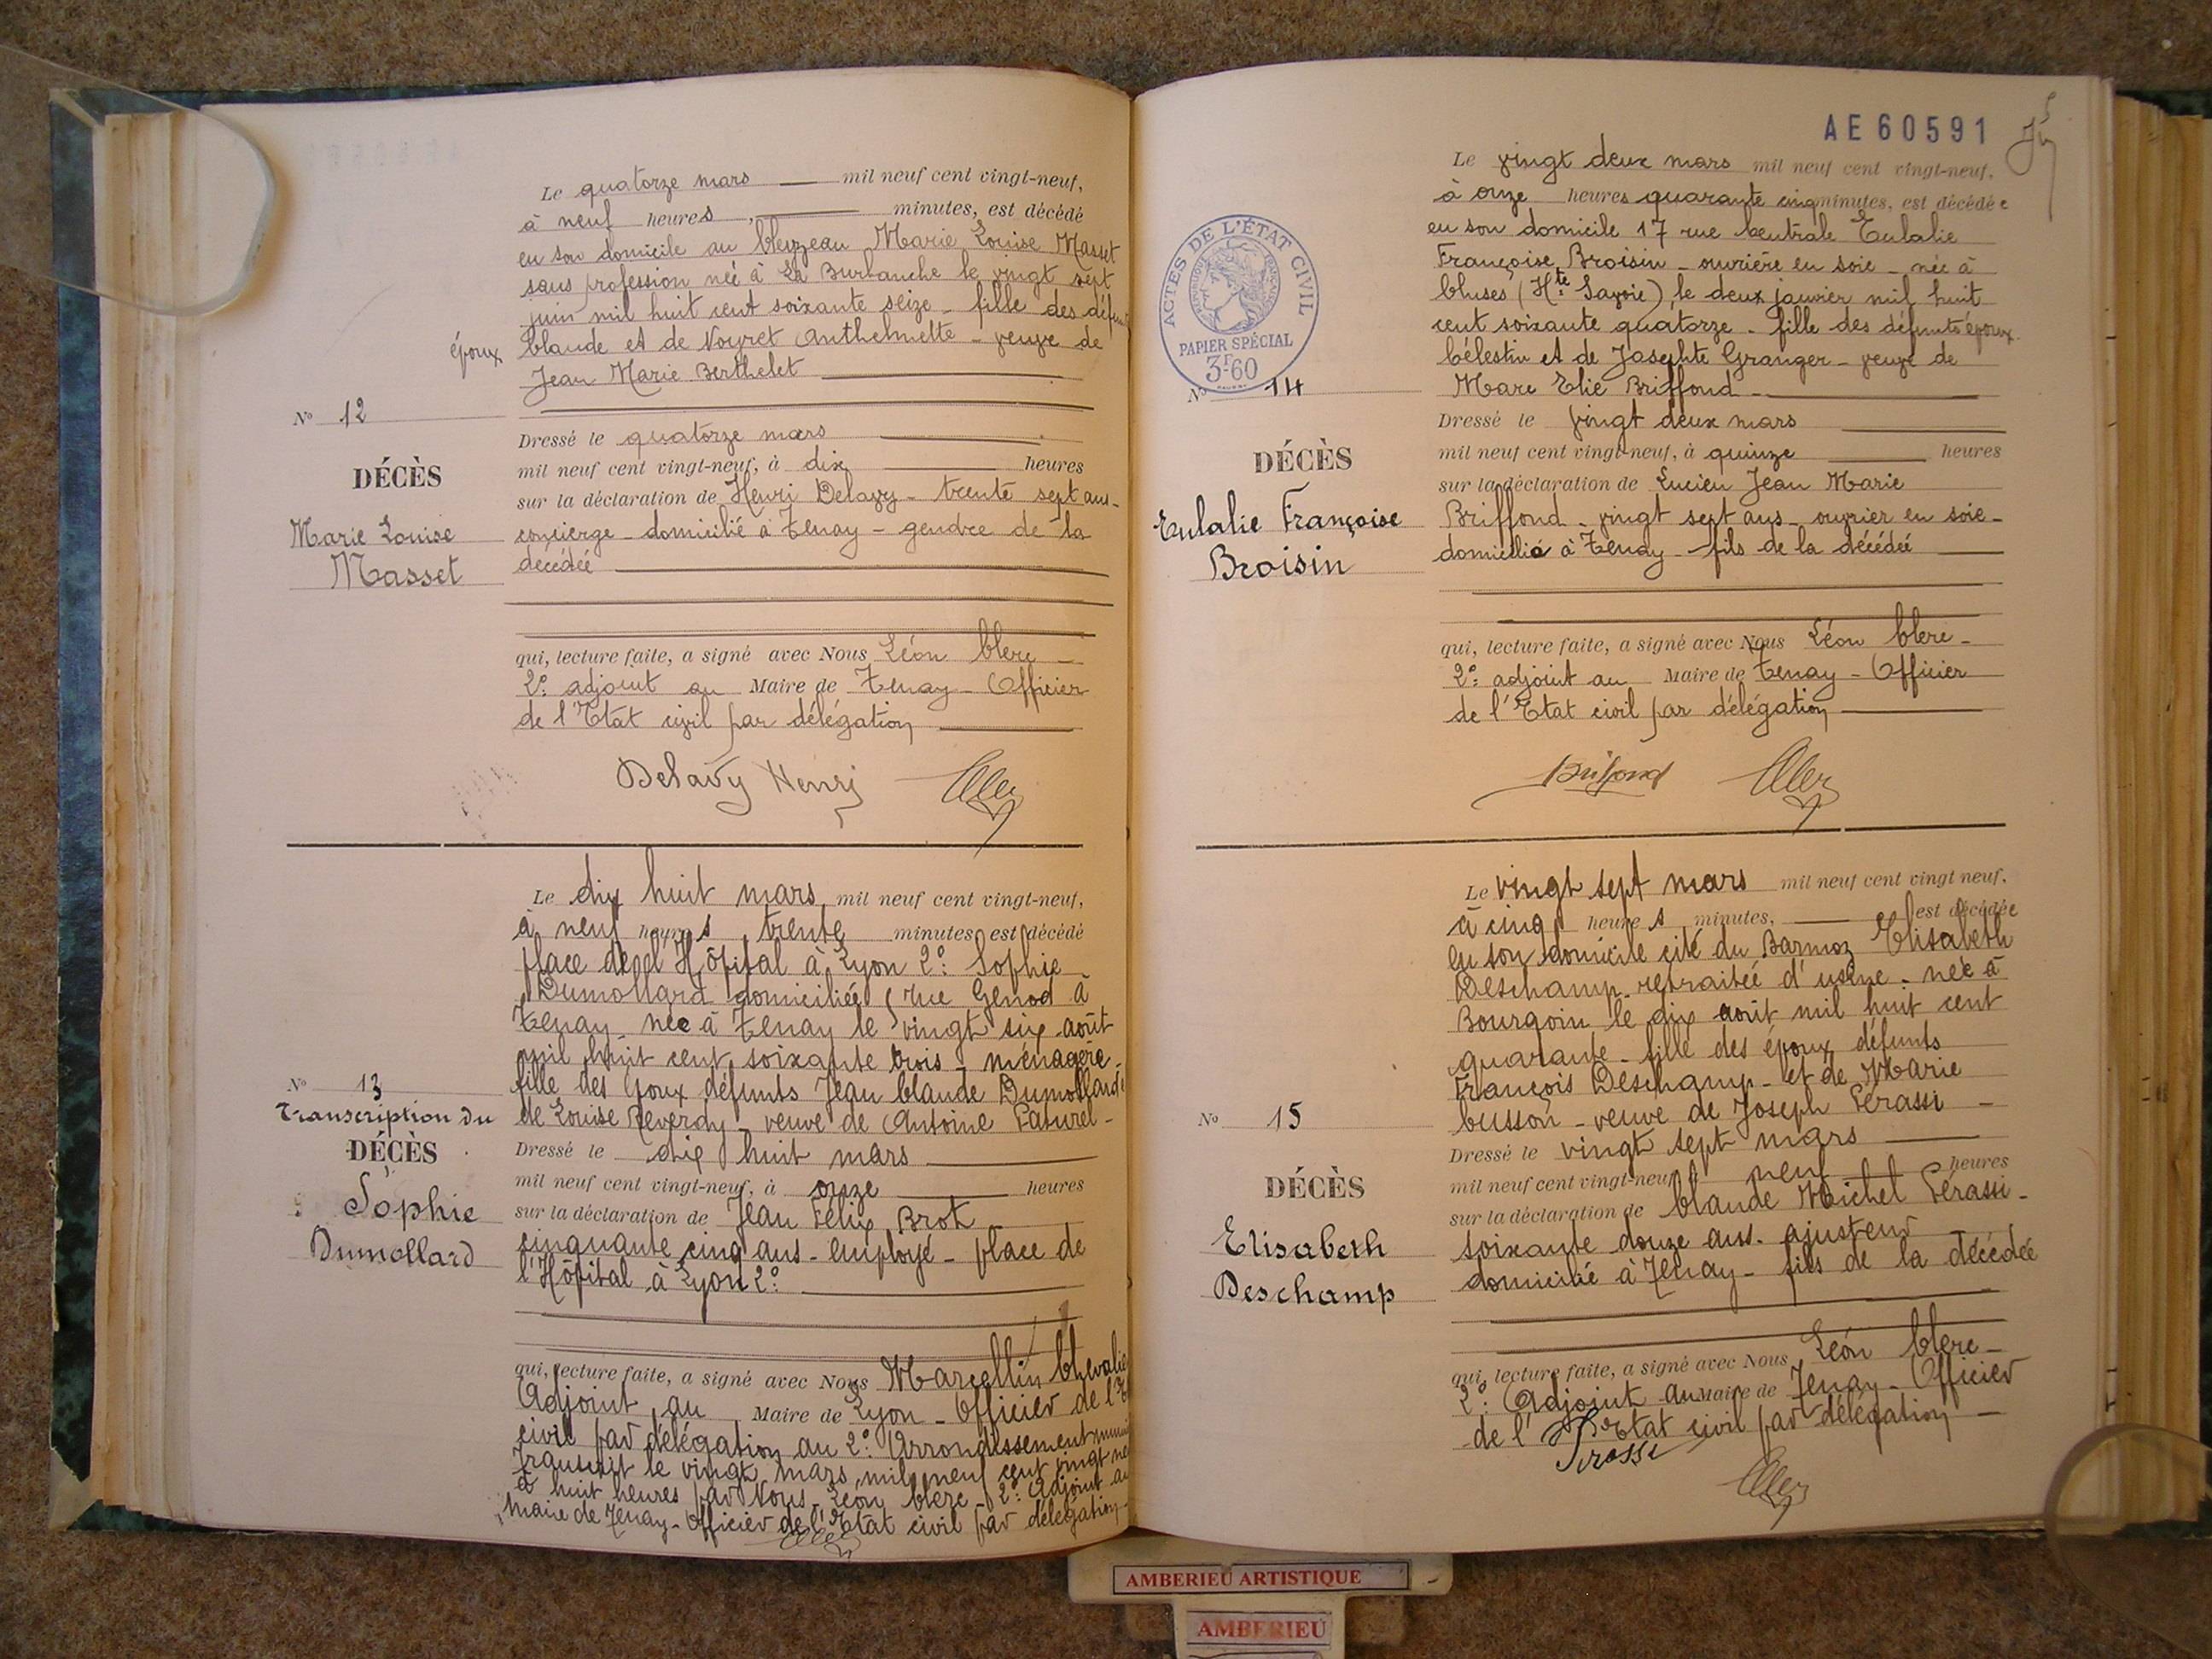 Le quatorze mars mil neuf cent vingt-neuf,
à neuf heures, minutes, est décédé
en son domicile au Marie Louise Masset
sans profession née à La Burbanche le vingt sept
juin mil huit cent soixante seize - fille des
époux Claude et de Noyret Anthelmette - veuve de
Jean Marie Berthelet
N° 12
DÉCÈS
Marie Louise
Masset
Dressé le quatorze mars
mil neuf cent vingt-neuf, à dix heures
sur la déclaration de Henri Delavy - trente sept ans -
concierge - domicilié à Tenay - gendre de la
décédée
qui, lecture faite, a signé avec Nous Léon Clerc -
2e adjoint au Maire de Tenay - Officier
de l'Etat civil par délégation
Delavy Henri Clerc
Le dix huit mars mil neuf cent vingt-neuf,
à neuf heures trente minutes est décédé
place de l'Hôpital à Lyon 2e Sophie
Dumollard domiciliée rue Genod à
Tenay née à Tenay le vingt six août
mil huit cent soixante trois - ménagère -
fille des époux défunts Jean Claude Dumollard
de Louise Reverdy - veuve de Antoine Faturel -
N° 13
Transcription du
DÉCÈS
Sophie
Dumollard
Dressé le dix huit mars
mil neuf cent vingt-neuf, à onze heures
sur la déclaration de Jean Félix Brot
cinquante cinq ans - employé - place de
l'Hôpital à Lyon 2e
qui, lecture faite, a signé avec Nous Marcellin
Adjoint au Maire de Lyon - Officier de
civil par délégation au 2e Arrondissement
transcrit le vingt mars mil neuf cent vingt
à huit heures par Nous - Léon Clerc - 2e Adjoint au
Maire de Tenay - Officier de l'Etat civil par délégation -
Clerc
AE 60591
ACTES DE L'ÉTAT CIVIL
RÉPUBLIQUE FRANÇAISE
PAPIER SPÉCIAL
3F60
Le vingt deux mars mil neuf cent vingt-neuf,
à onze heures quarante cinq minutes, est décédée
en son domicile 17 rue Centrale Eulalie
Françoise Broisin - ouvrière en soie - née à
Cluses (Hte Savoie) le deux janvier mil huit
cent soixante quatorze - fille des défunts époux
Célestin et de Josephte Granger - veuve de
Marc Elie Briffond -
N° 14
DÉCÈS
Eulalie Françoise
Broisin
Dressé le vingt deux mars
mil neuf cent vingt-neuf, à quinze heures
sur la déclaration de Lucien Jean Marie
Briffond - vingt sept ans - ouvrier en soie -
domicilié à Tenay - fils de la décédée
qui, lecture faite, a signé avec Nous Léon Clerc -
2e adjoint au Maire de Tenay - Officier
de l'Etat civil par délégation
Briffond Clerc
Le vingt sept mars mil neuf cent vingt neuf,
à cinq heures minutes, est décédée
en son domicile cité du Barmoz Elisabeth
Deschamp retraitée d'usine - née à
Bourgoin le dix août mil huit cent
quarante - fille des époux défunts
François Deschamp - et de Marie
Cusson - veuve de Joseph Perassi -
N° 15
DÉCÈS
Elisabeth
Deschamp
Dressé le vingt sept mars
mil neuf cent vingt-neuf, à neuf heures
sur la déclaration de Claude Michel Perassi -
soixante douze ans - ajusteur
domicilié à Tenay - fils de la décédée
qui, lecture faite, a signé avec Nous Léon Clerc -
2e Adjoint au Maire de Tenay - Officier
de l'Etat civil par délégation -
Clerc
AMBERIEU ARTISTIQUE
AMBERIEU